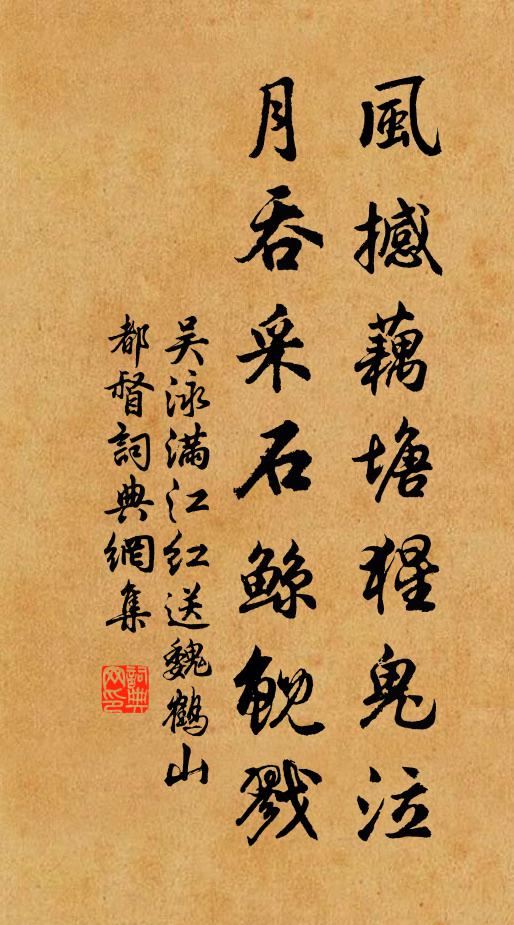 風撼藕塘猩鬼泣
月吞采石鲸鲵戮
吴泳满江红送魏鶴山
都督詞典網集
詞典网印